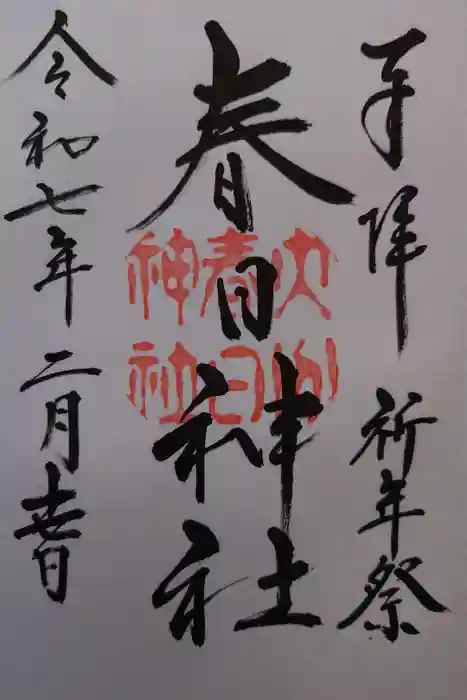 奉拝 祈年祭
春日神社
令和七年二月十七日
春日
神社